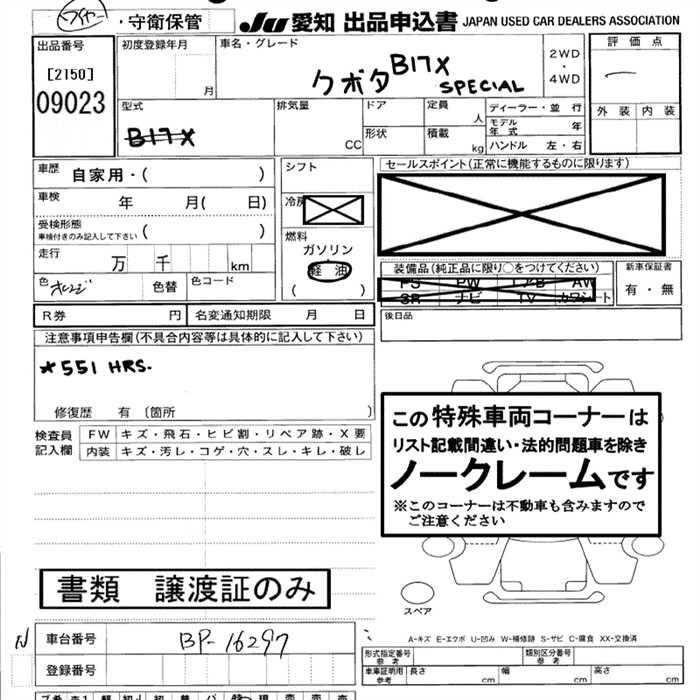 ワイヤー・守衛保管
JU 愛知 出品申込書 JAPAN USED CAR DEALERS ASSOCIATION
出品番号
[2150]
09023
初度登録年月
月
車名・グレード
クボタ B17X SPECIAL
2WD
・
4WD
評価点
外装 内装
型式
B17X
排気量
CC
ドア
形状
定員
人
積載
kg
ディーラー・並行
モデル年式 年
ハンドル 左・右
車歴 自家用・( )
車検 年 月( 日)
受検形態
車検付きのみ記入して下さい ( )
走行 万 千 km
色 オレンジ 色替 色コード
シフト
冷房
燃料
ガソリン
軽油
( )
セールスポイント(正常に機能するものに限ります)
装備品(純正品に限り〇をつけてください)
PS PW エアB AW
SR ナビ TV カワシート
新車保証書
有・無
R券 円 名変通知期限 月 日
後日品
注意事項申告欄(不具合内容等は具体的に記入して下さい)
*551 HRS.
修復歴 有 〔箇所 〕
検査員記入欄
FW キズ・飛石・ヒビ割・リペア跡・X要
内装 キズ・汚レ・コゲ・穴・スレ・キレ・破レ
この特殊車両コーナーは
リスト記載間違い・法的問題車を除き
ノークレームです
※このコーナーは不動車も含みますので
ご注意ください
書類 譲渡証のみ
スペア
A-キズ E-エクボ U-凹み W-補修跡 S-サビ C-腐食 XX-交換済
N
車台番号 BP-16297
登録番号
形式指定番号
参考
類別区分番号
参考
車庫証明用
参考
長さ cm 幅 cm 高さ cm